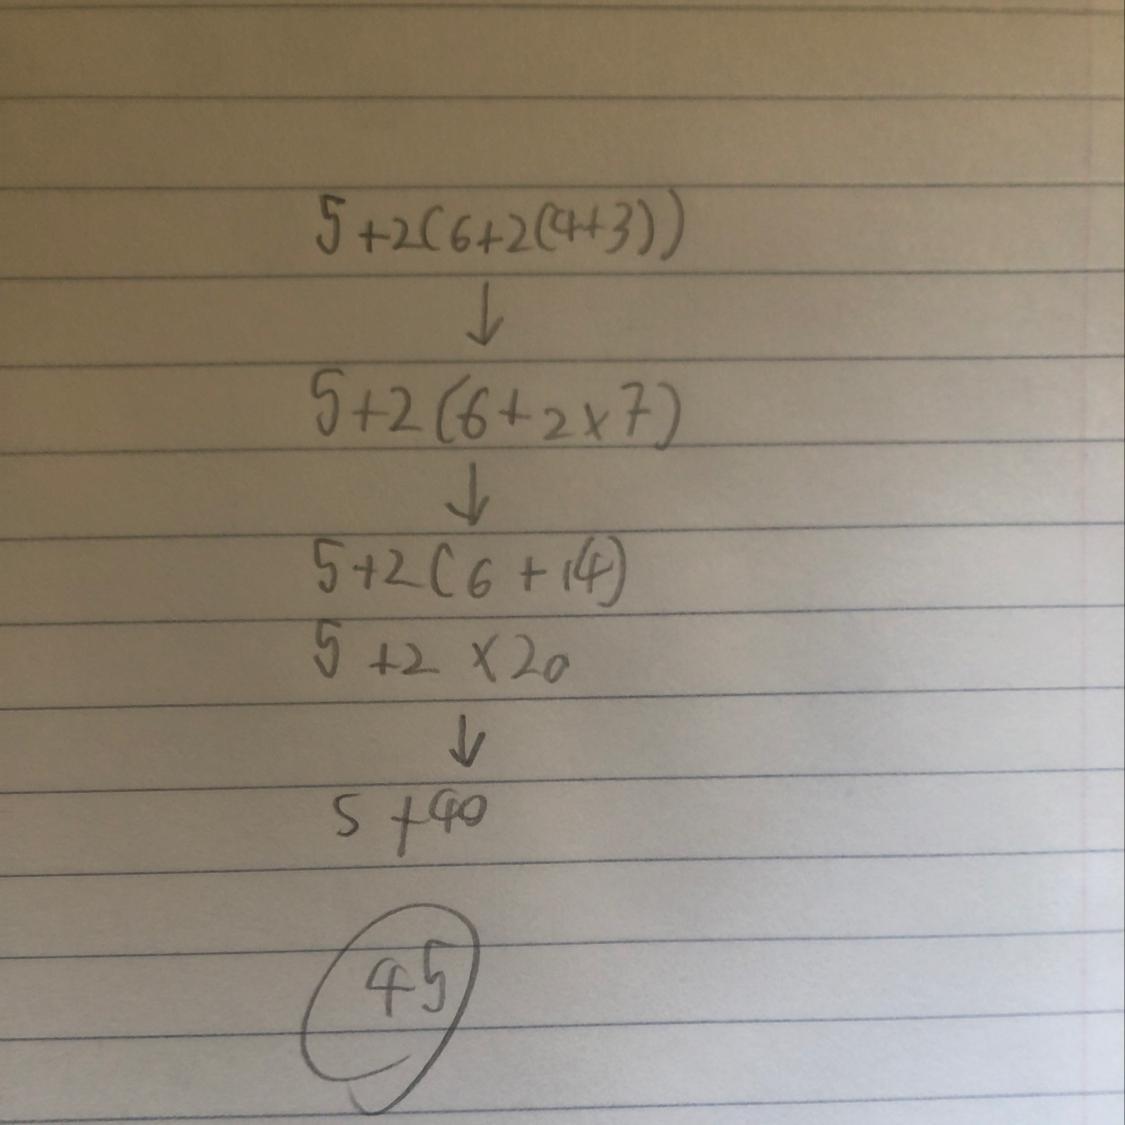 5+2(6+2(4+3))
↓
5+2(6+2×7)
↓
5+2(6+14)
5+2×20
↓
5+40
45